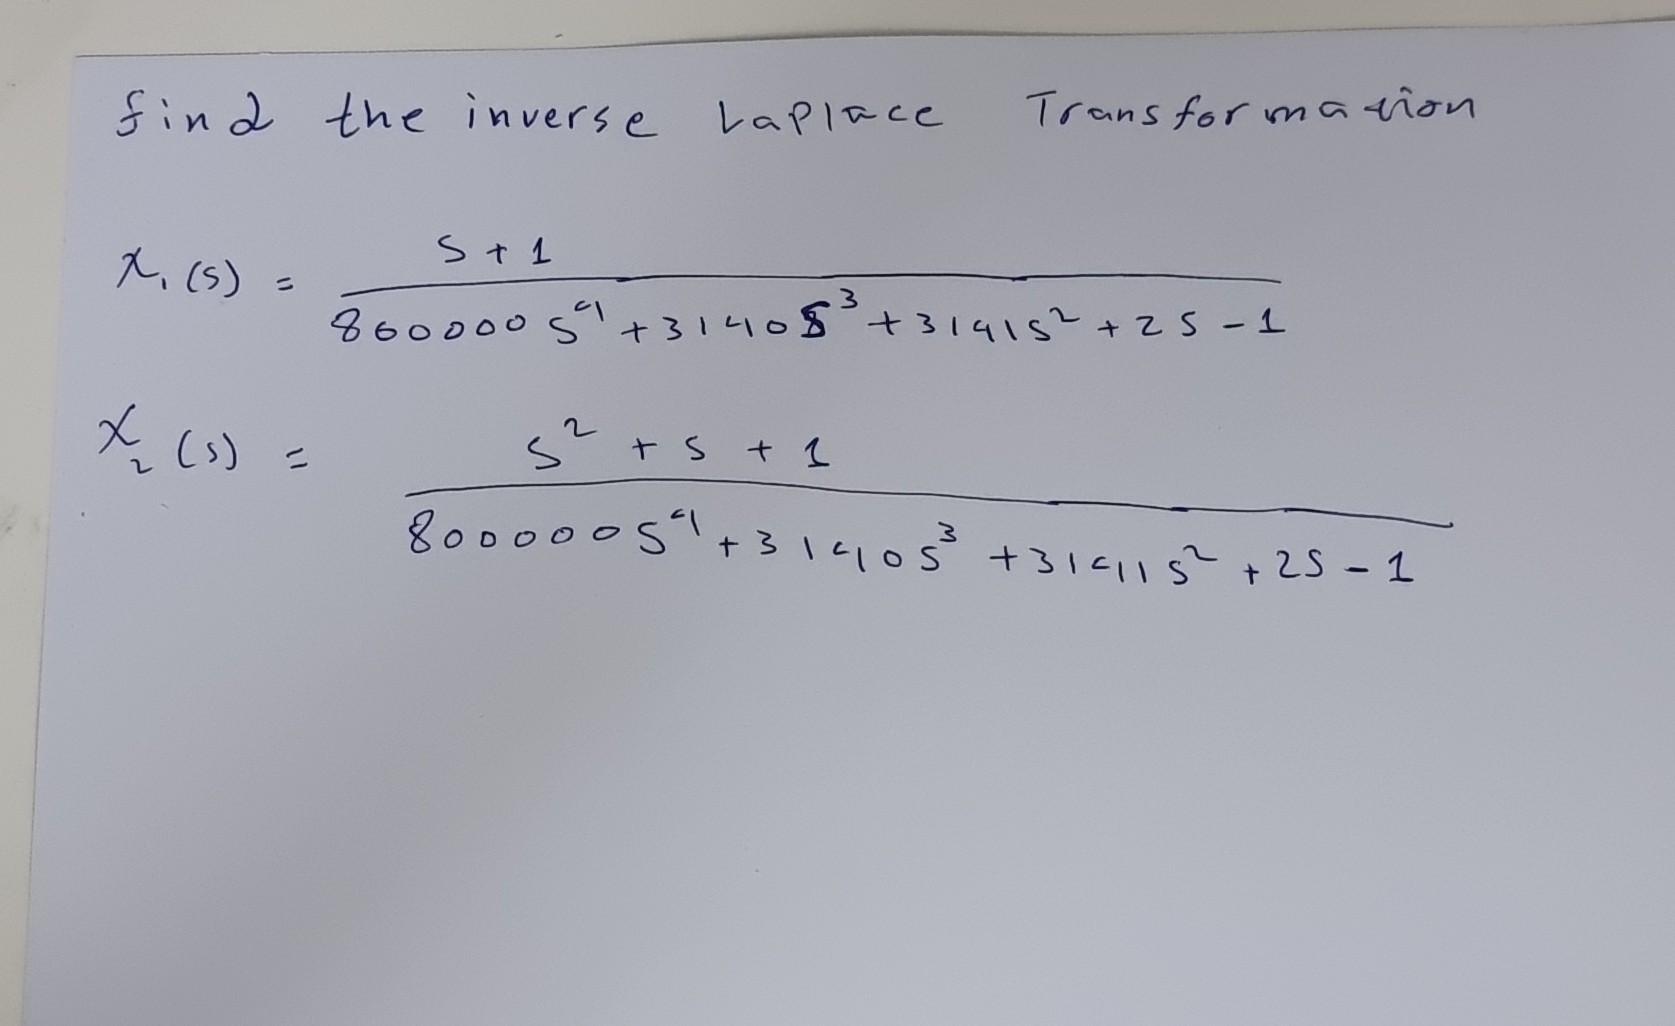 find the inverse Laplace Transformation
X₁(s) = s + 1 / 800000 s⁴ + 3140 s³ + 3141 s² + 2 s - 1
X₂(s) = s² + s + 1 / 800000 s⁴ + 3140 s³ + 3141 s² + 2 s - 1